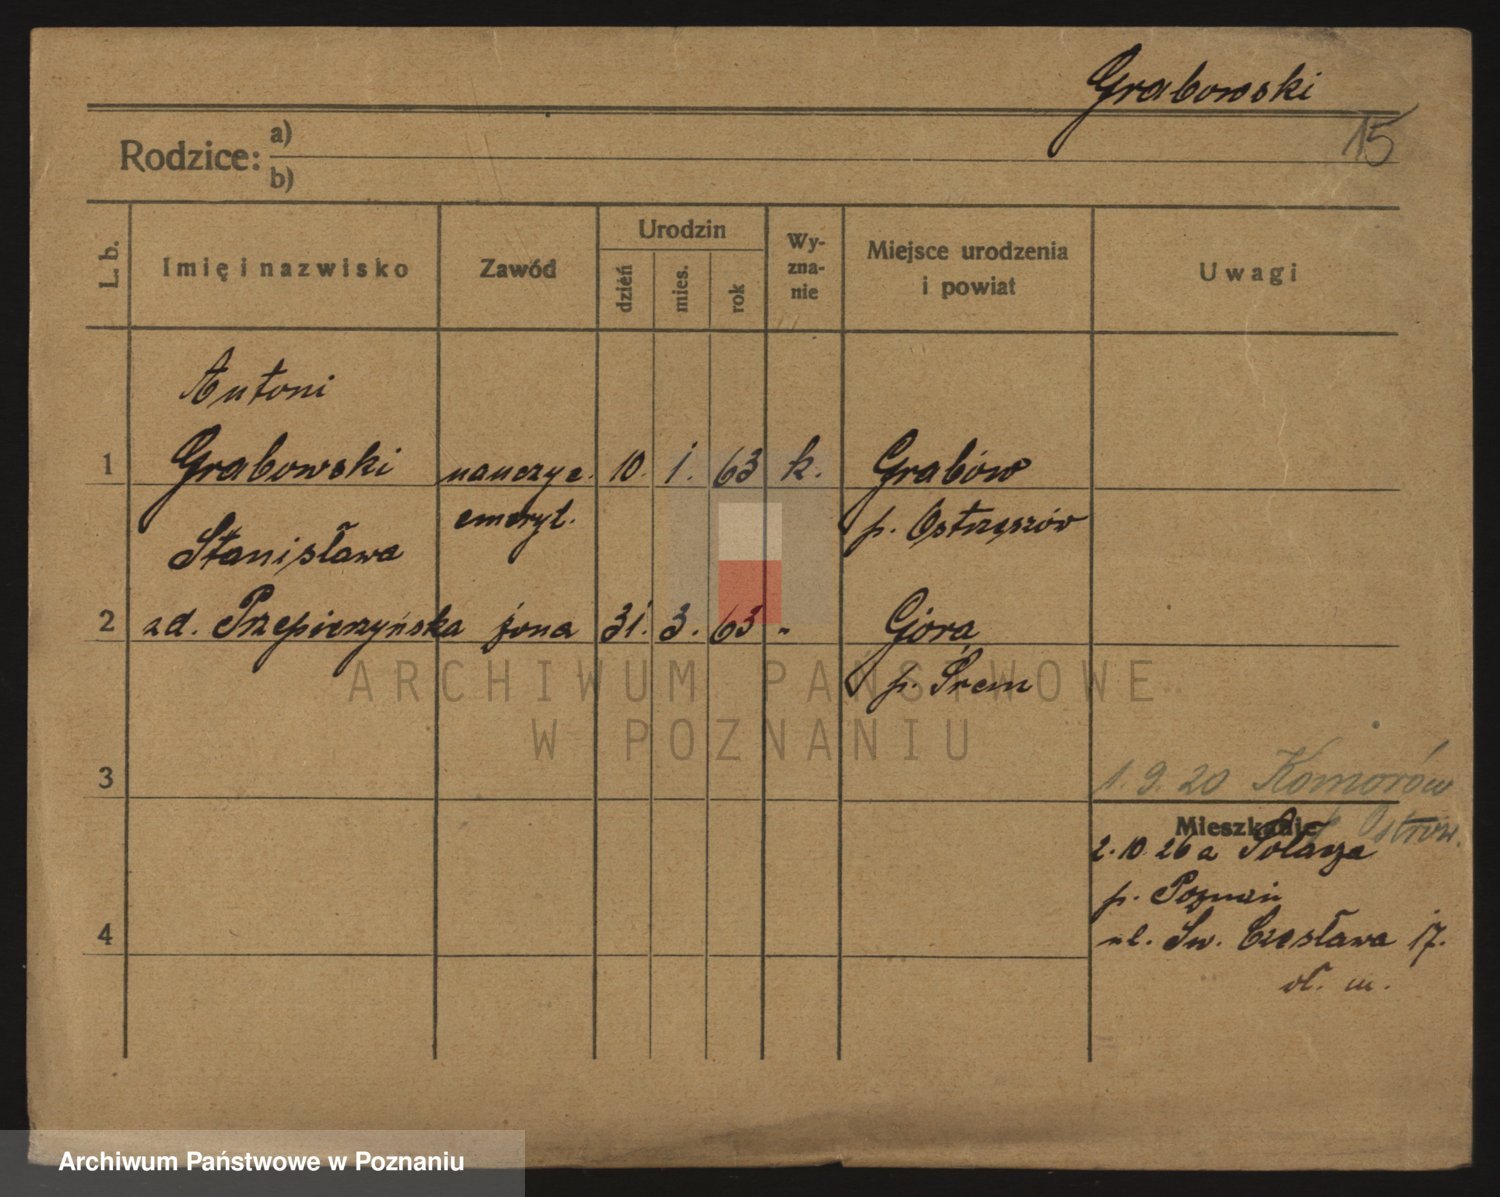 Grabowski
15
Rodzice: a)
b)
L. b.
Imię i nazwisko
Zawód
Urodzin
dzień
mies.
rok
Wy-
zna-
nie
Miejsce urodzenia
i powiat
Uwagi
Antoni
1 Grabowski nauczyc. 10. 1. 63 k. Grabów
emeryt. p. Ostrzeszów
Stanisława
2 zd. Przepierzyńska żona 31. 3. 63 " Góra
p. Śrem
ARCHIWUM PAŃSTWOWE
W POZNANIU
3
1. 9. 20 Komorów
Ostrów.
Mieszkanie
2. 10. 26 a Sołacza
p. Poznań
4
ul. Św. Czesława 17.
wł. m.
Archiwum Państwowe w Poznaniu